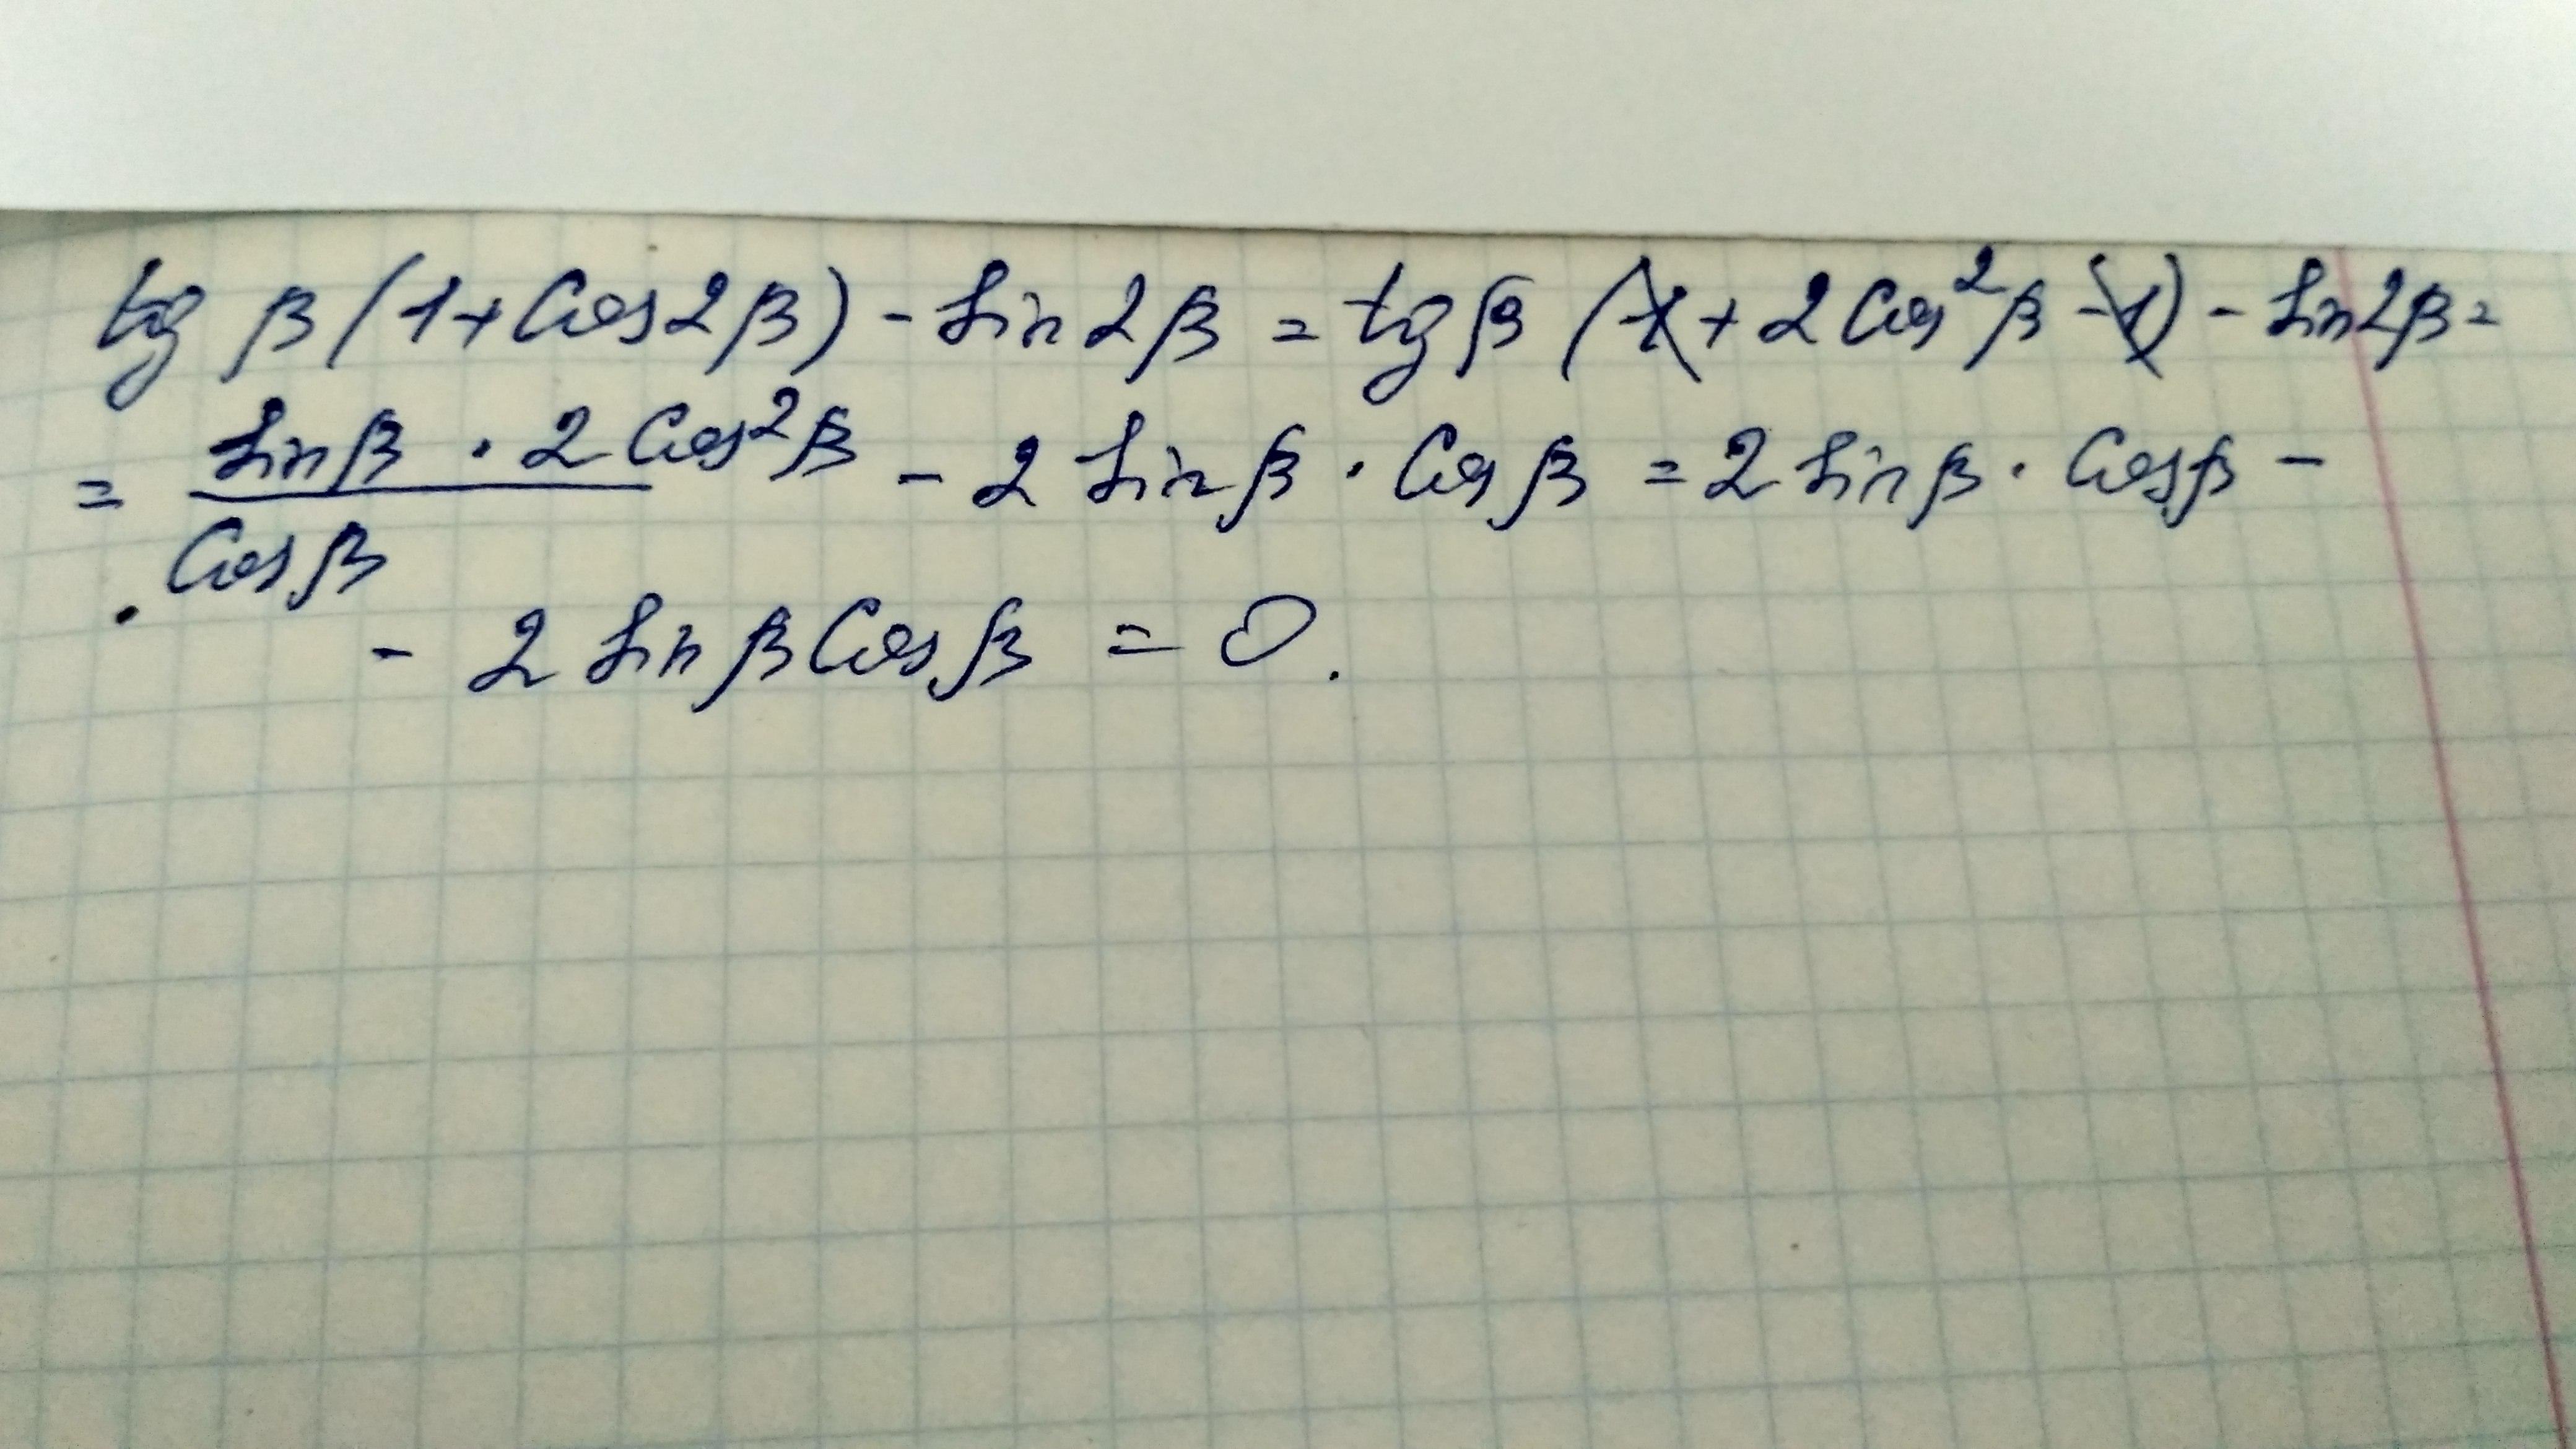 tg β (1 + Cos 2β) - Sin 2β = tg β (1 + 2 Cos²β - 1) - Sin 2β =
= Sinβ · 2 Cos²β / Cosβ - 2 Sinβ · Cosβ = 2 Sinβ · Cosβ -
- 2 Sinβ Cosβ = 0.